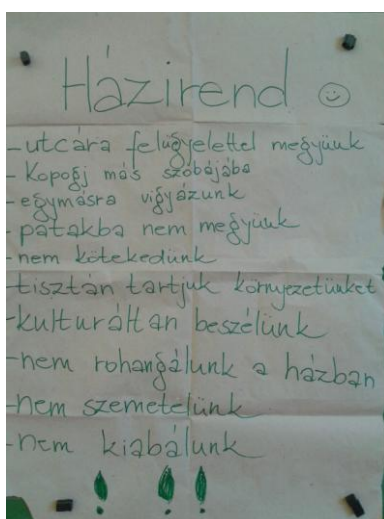 Házirend ☺
- utcára felügyelettel megyünk
- Kopogj más szobájába
- egymásra vigyázunk
- patakba nem megyünk
- nem kötekedünk
- tisztán tartjuk környezetünket
- kulturáltan beszélünk
- nem rohangálunk a házban
- nem szemetelünk
- nem kiabálunk
! ! !